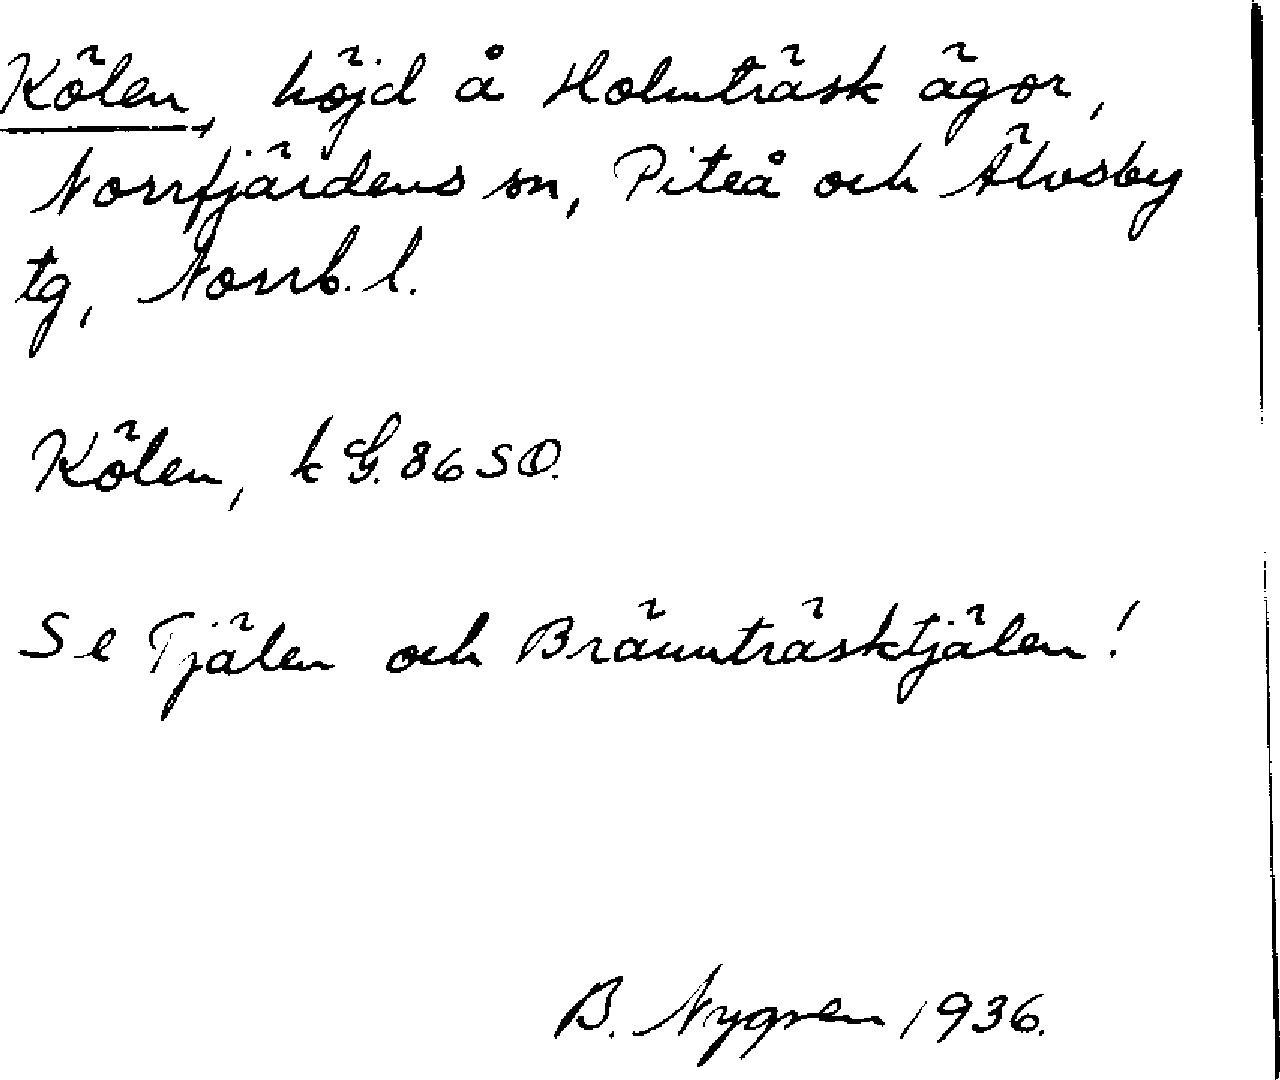 Kölen, höjd å Holmträsk ägor,
Norrfjärdens sn, Piteå och Älvsby
tg, Norrb. l.
Kölen, k G. 86 SO.
Se Tjälen och Brännträsktjälen!
B. Nygren 1936.